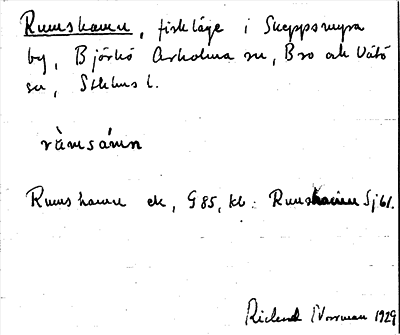 Rumshamn, fiskläge i Skeppsmyra
by, Björkö Arholma sn, Bro och Vätö
sn, Sthlms l.
Rumshamn ek, G 85, kb. Rumshamn Sj 61.
Rickard Norrman 1929